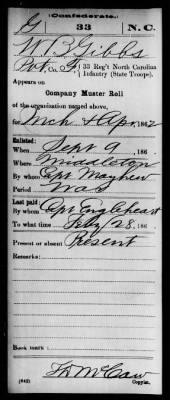 (Confederate.)
G 33 N.C.
W. B. Gibbs
Pvt, Co. F, 33 Reg't North Carolina
Infantry (State Troops).
Appears on
Company Muster Roll
of the organization named above,
for Mch & Apr, 1862
Enlisted:
When Sept 9, 186 .
Where Middleton
By whom Capt Mayhew
Period War
Last paid:
By whom Capt Engleheart
To what time Feby 28, 186 .
Present or absent Present
Remarks:
Book mark:
(642) Copyist.